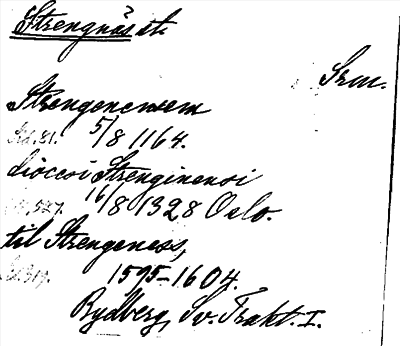 Strengnäs st.
Srm.
Strengenensem
Sid. 81. 5/8 1164.
diocesi Strenginensi
16/8 1328 Oslo.
til Strengeness,
1595–1604.
Rydberg, Sv. Trakt. I.